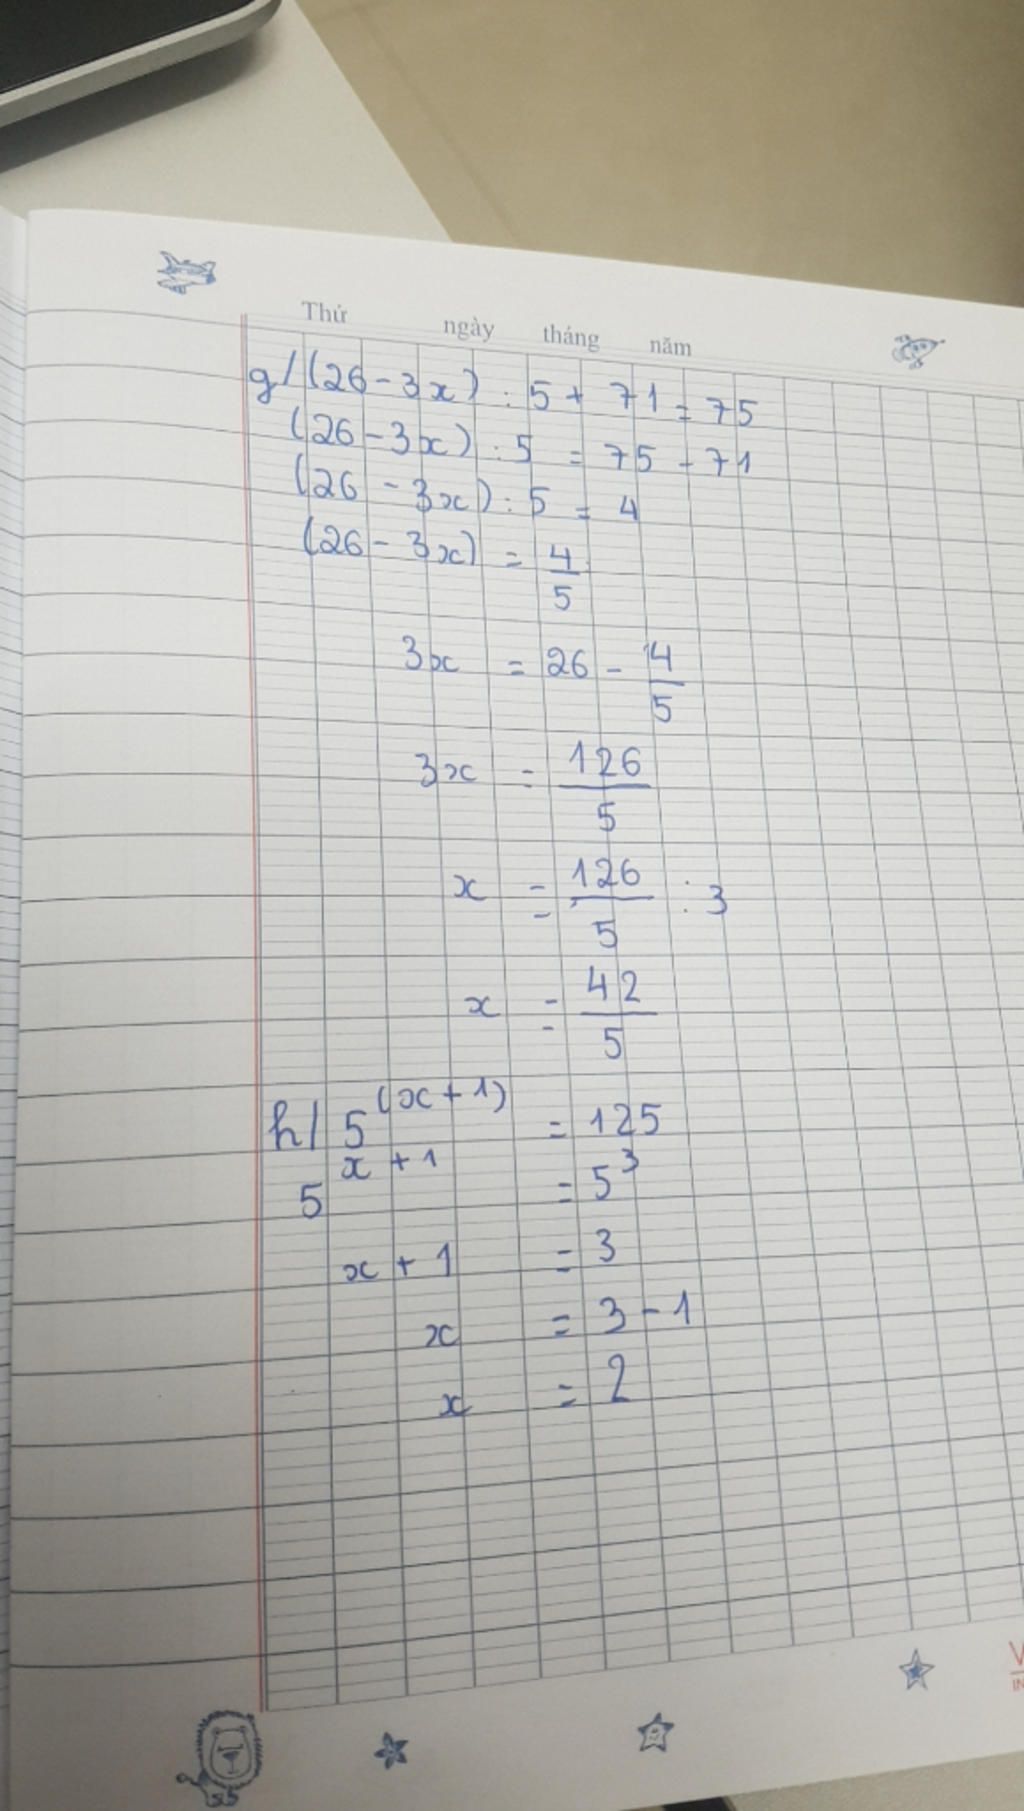 Thứ ngày tháng năm
g/ (26 - 3x) : 5 + 71 = 75
(26 - 3x) : 5 = 75 - 71
(26 - 3x) : 5 = 4
(26 - 3x) = 4/5
3x = 26 - 4/5
3x = 126/5
x = 126/5 : 3
x = 42/5
h/ 5^(x + 1) = 125
5^x + 1 = 5^3
x + 1 = 3
x = 3 - 1
x = 2